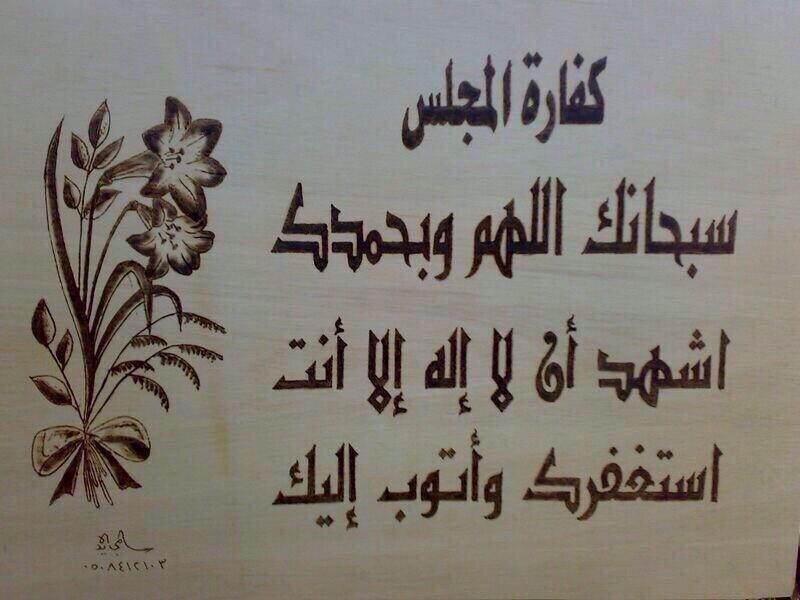 كفارة المجلس
سبحانك اللهم وبحمدك
اشهد أن لا إله إلا أنت
استغفرك وأتوب إليك
٠٥٠٨٤١٢١٠٣